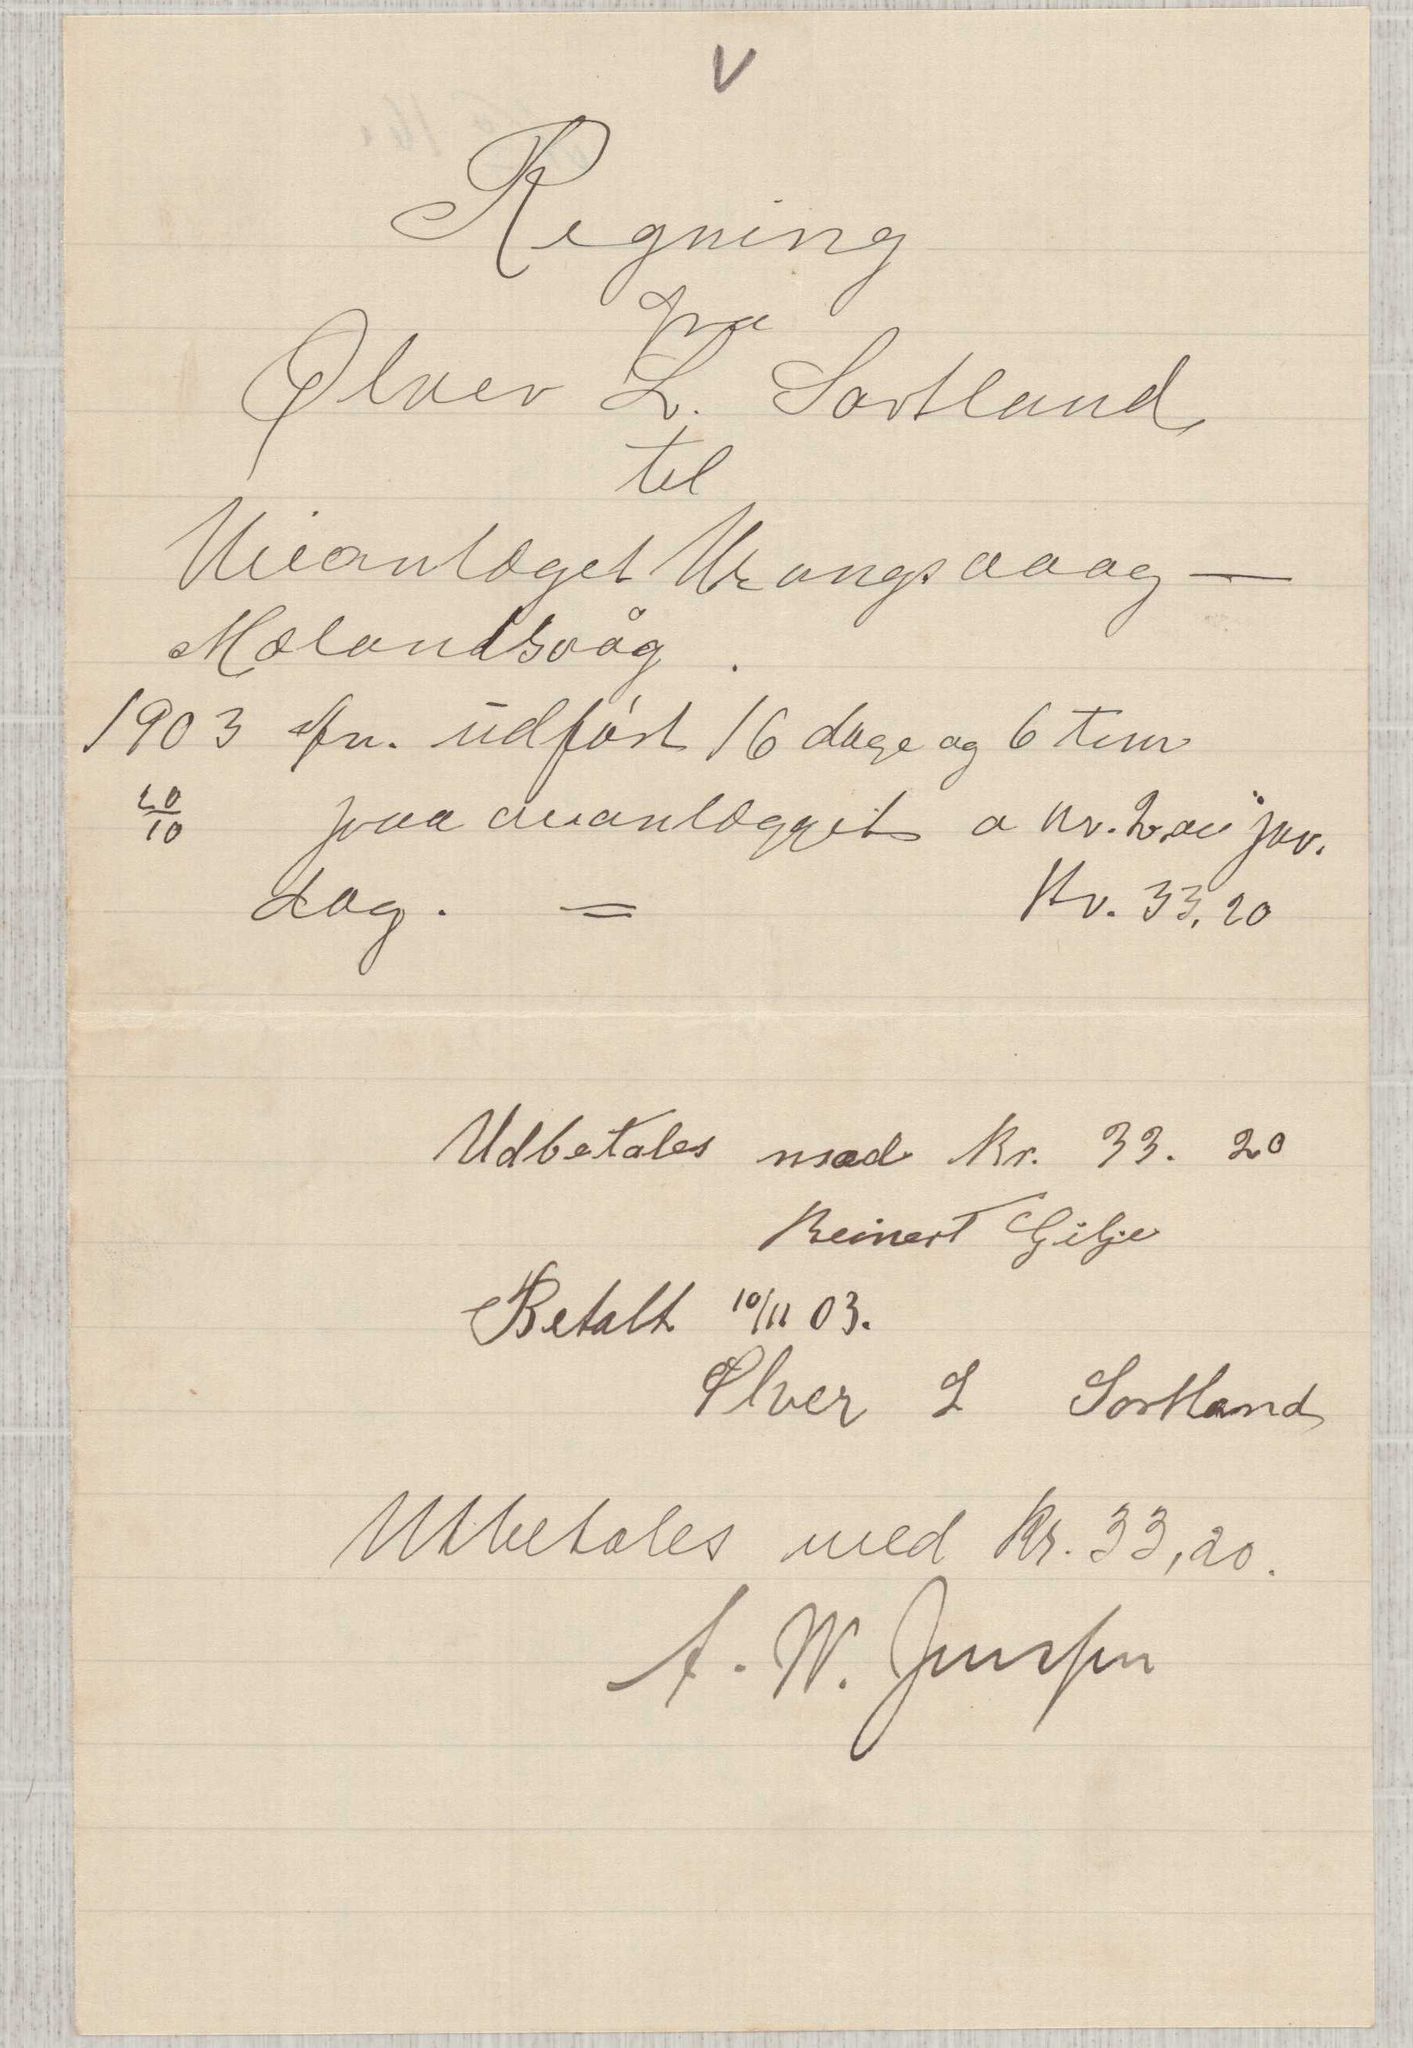 V
Regning
fra
Ølver L. Sortland
til
Veianlæget Vrangsvaag —
Mælandsvåg.
1903 udført 16 dage og 6 tim
20/10 paa veianlægget a kr. 2,00 pr.
dag. = Kr. 33,20
Udbetales med Kr. 33. 20
Reinert Gilje
Betalt 10/11 03.
Ølver L Sortland
Utbetales med Kr. 33,20.
A. W. Jensen